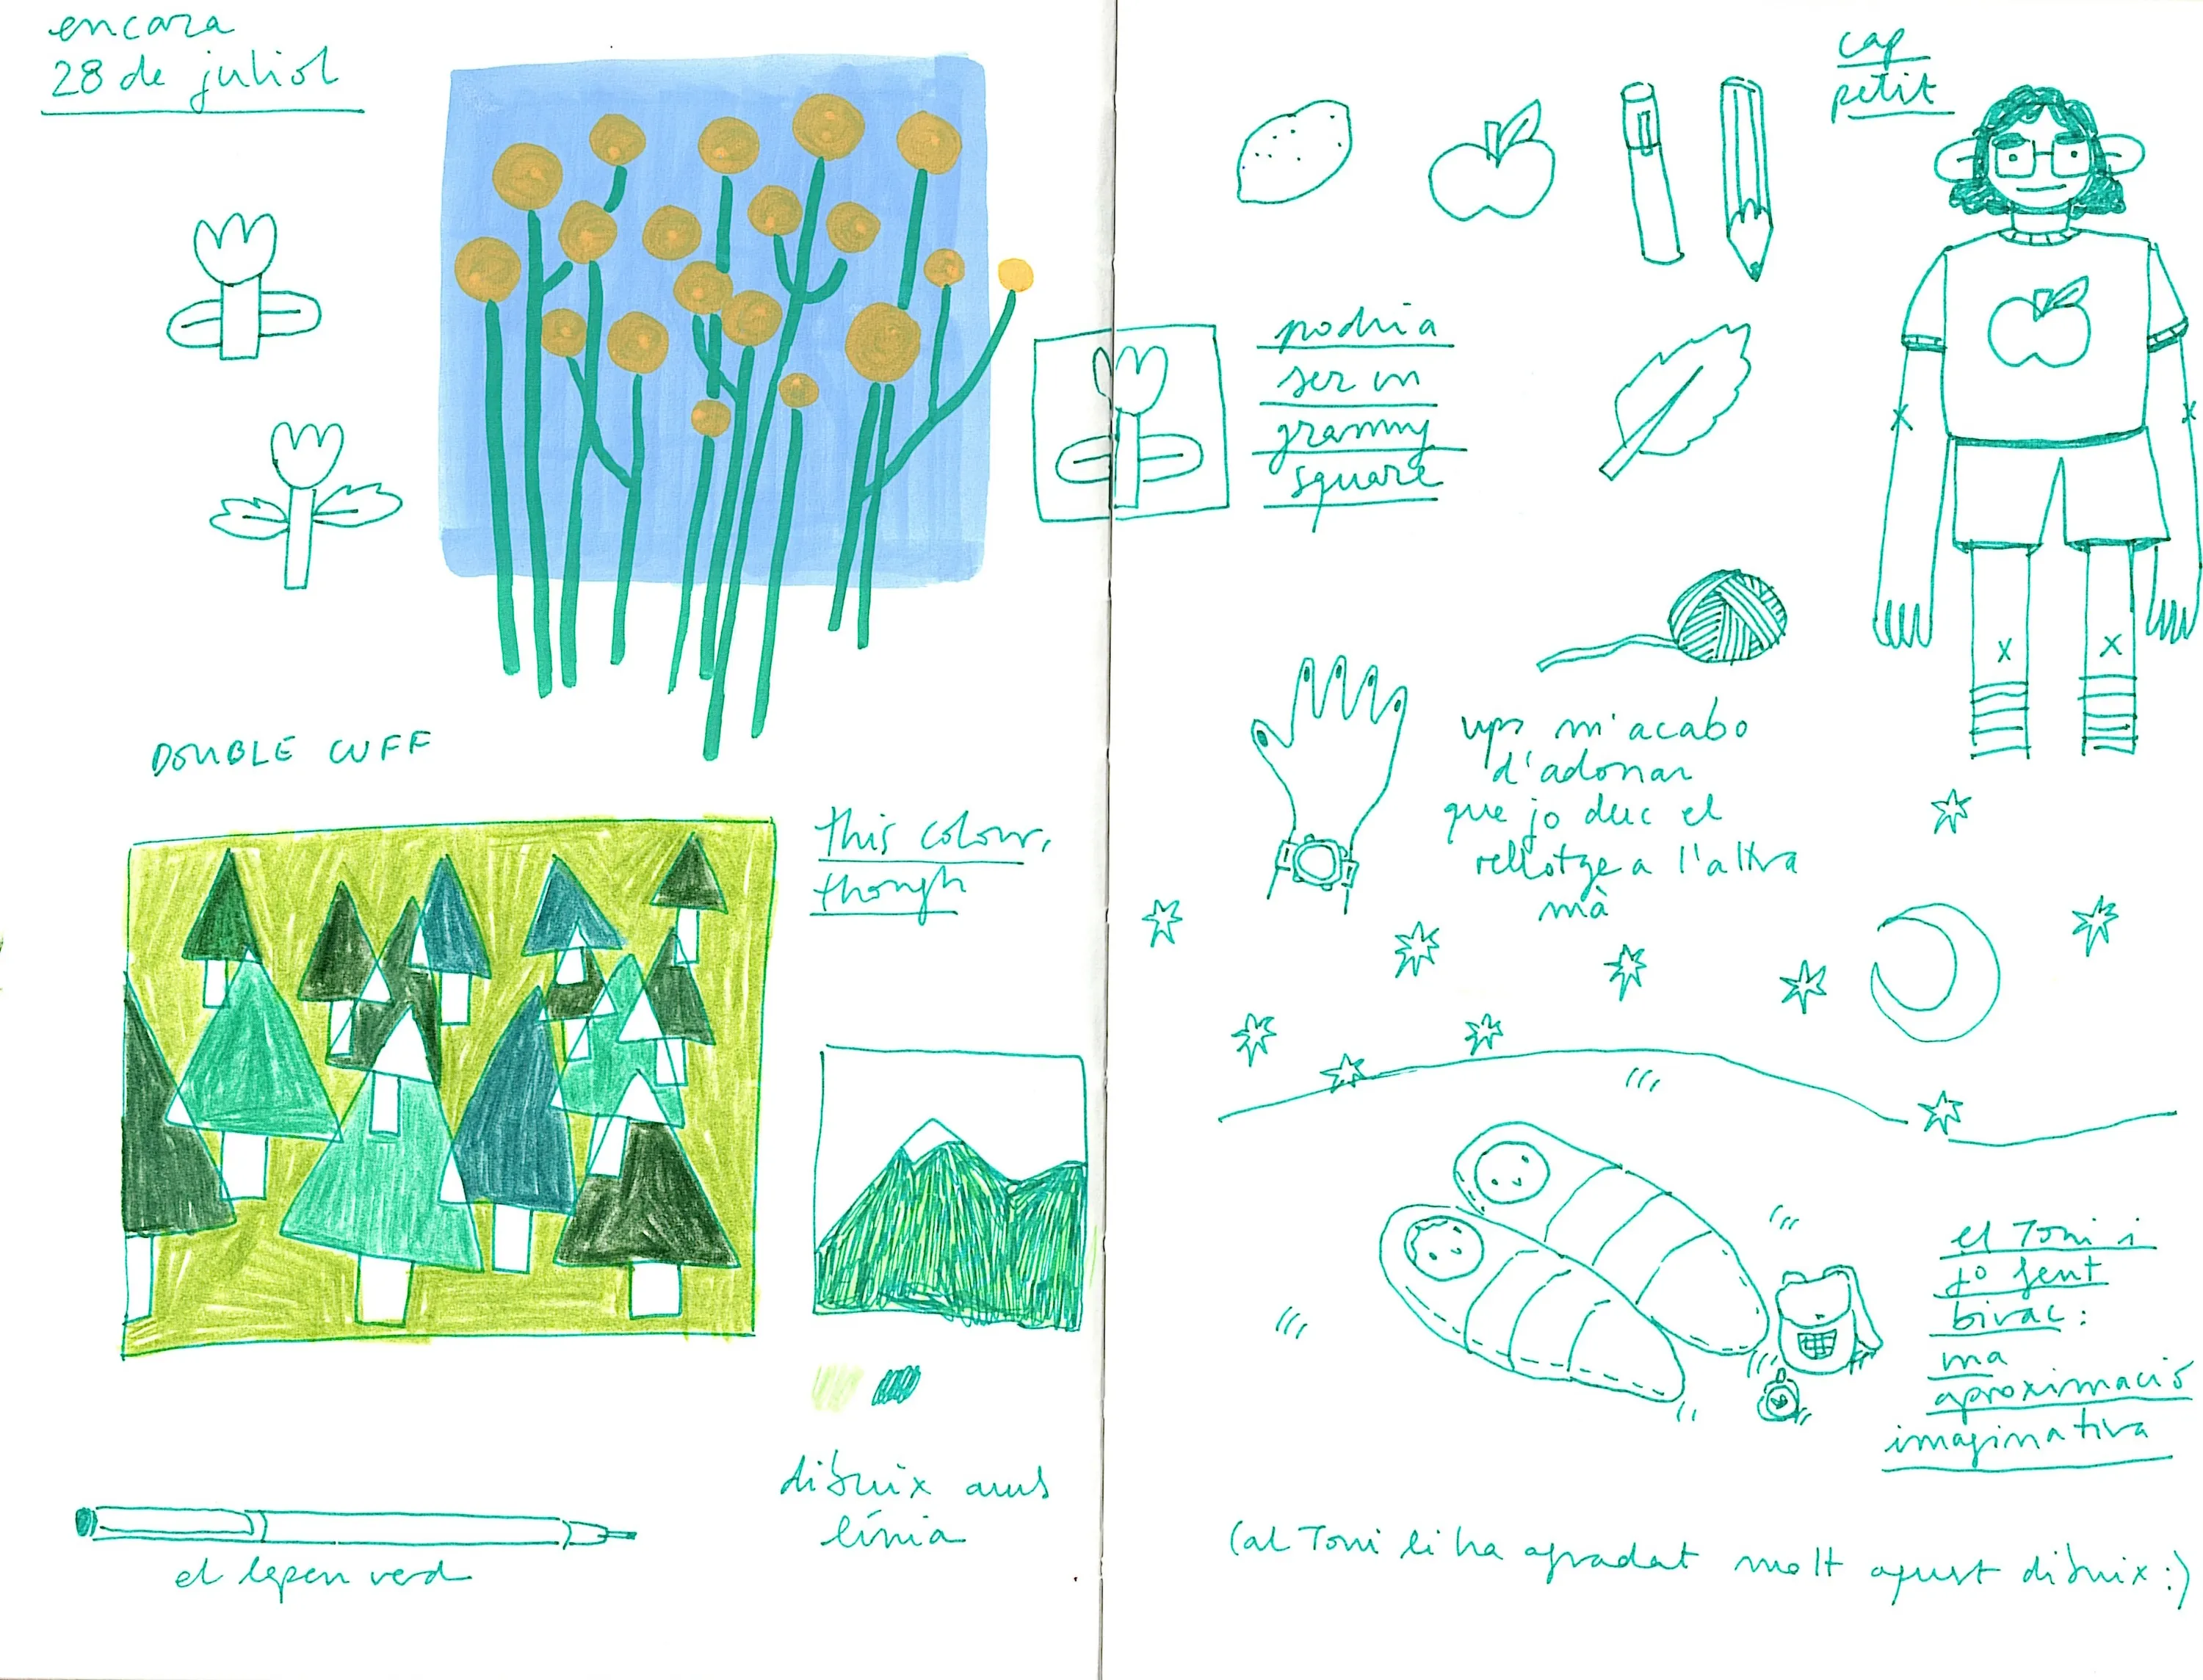 encara
28 de juliol
DOUBLE CUFF
this colour,
though
dibuix amb
línia
el lepen verd
cap
petit
podria
ser un
granny
square
ups m'acabo
d'adonar
que jo duc el
rellotge a l'altra
mà
el Toni i
jo fent
bivac:
ma
aproximació
imaginativa
(al Toni li ha agradat molt aquest dibuix :)